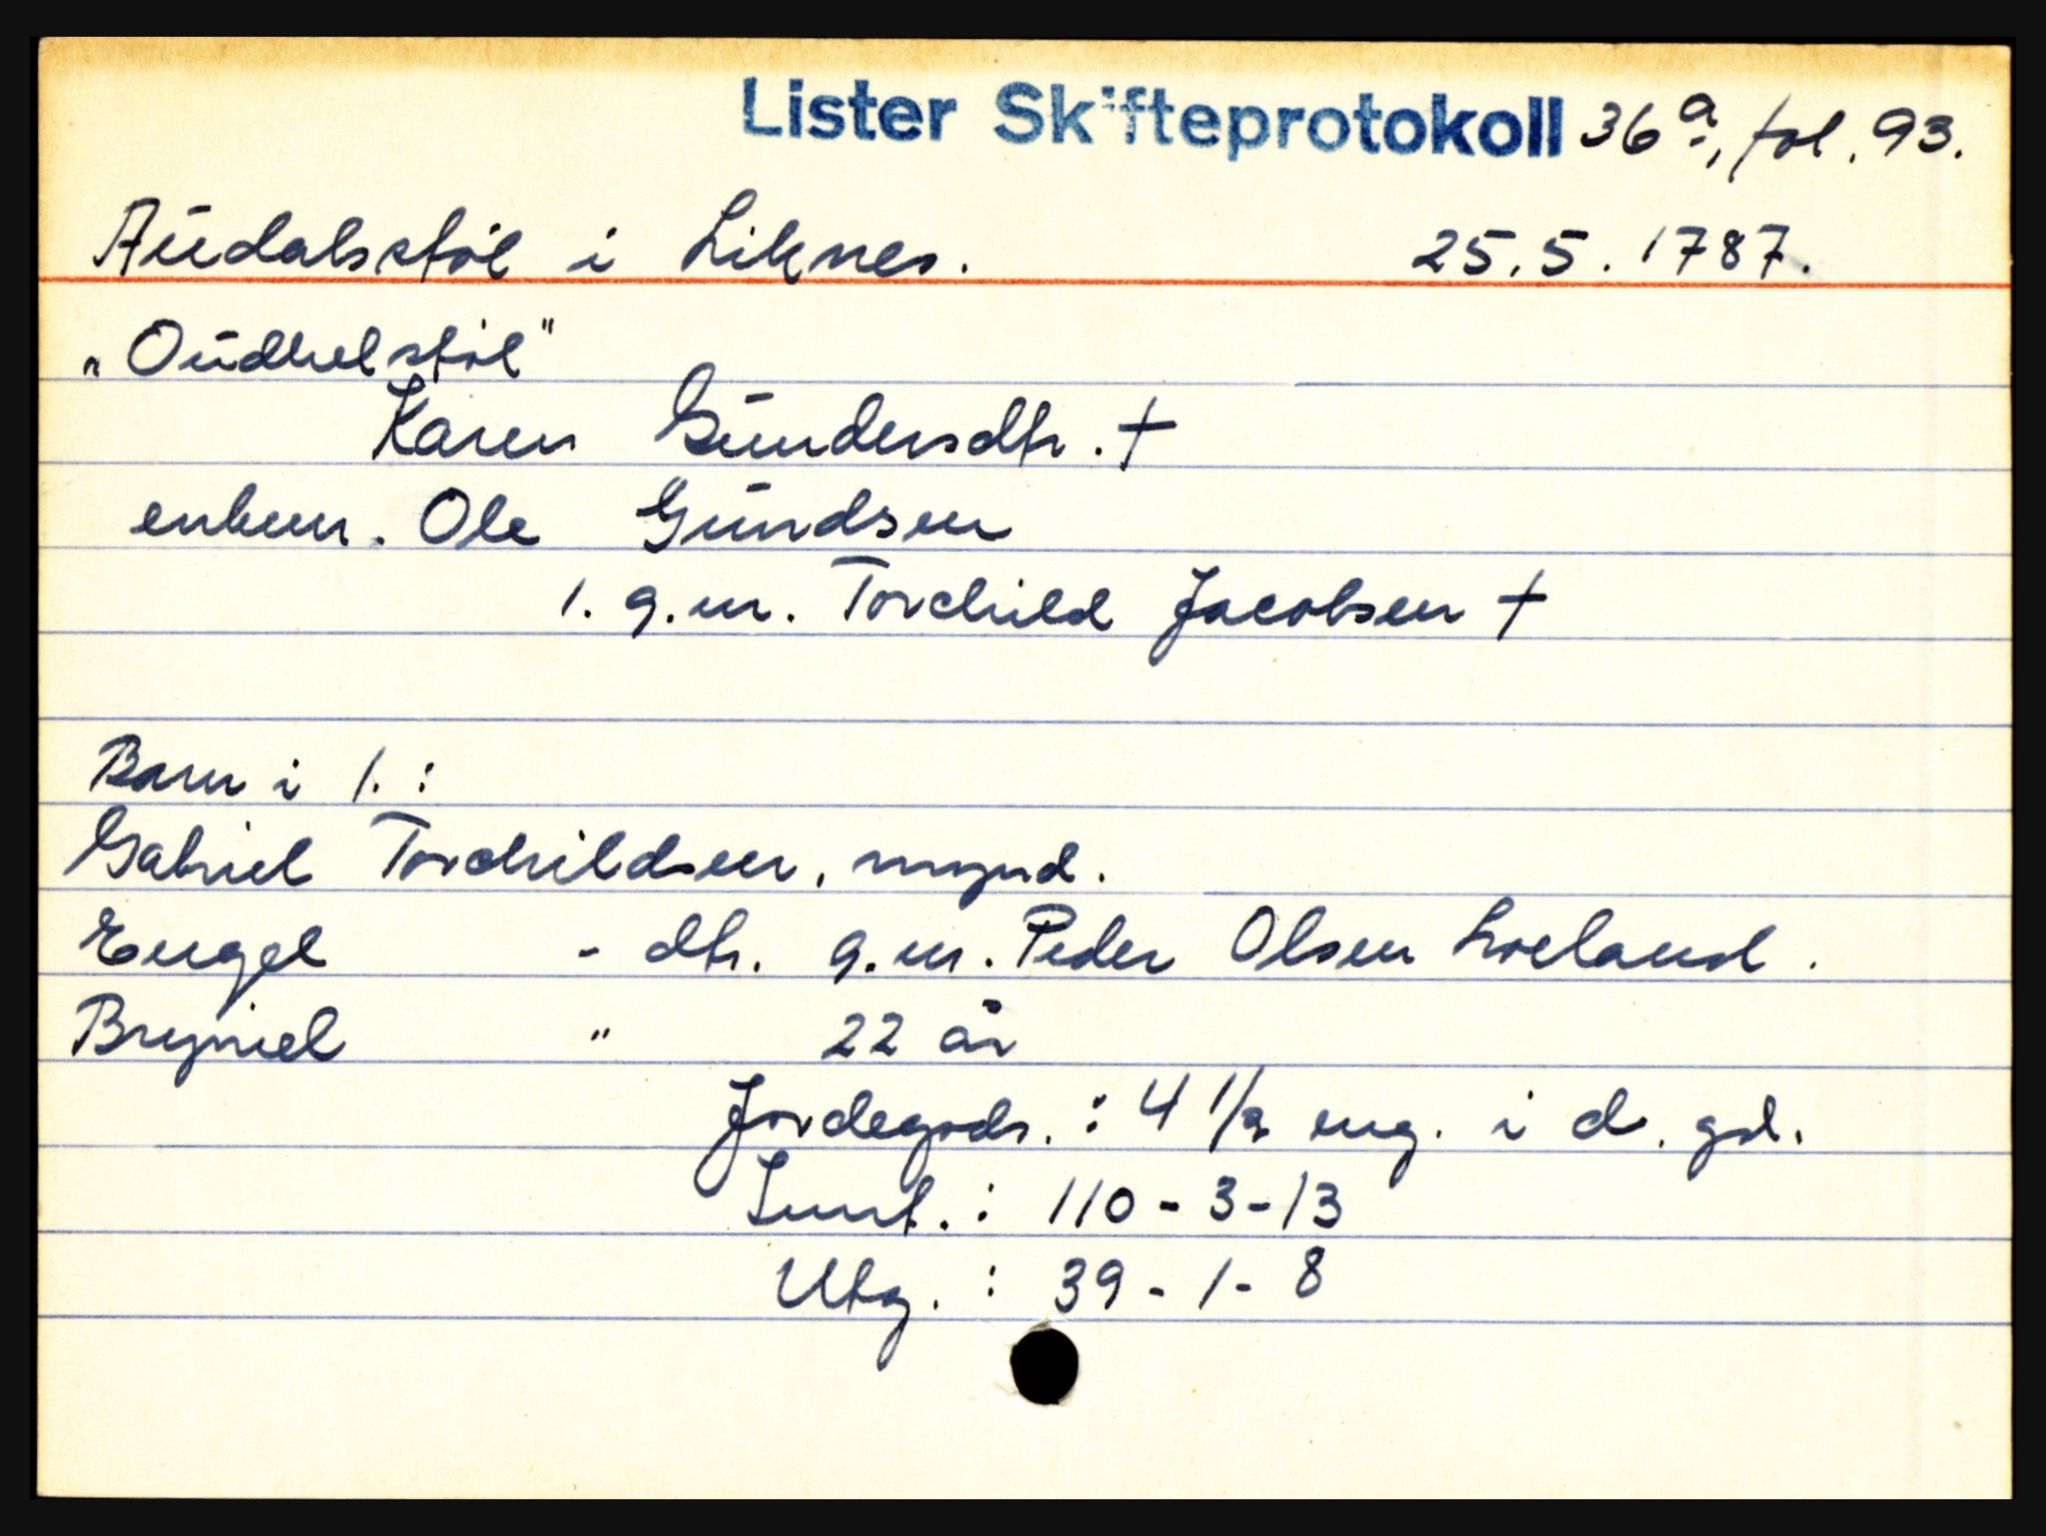 Lister Skifteprotokoll 36a, fol. 93.
Audalsstøl i Liknes. 25.5.1787.
"Oudhelstøl"
Karen Gundersdtr. †
enkem. Ole Gundsen
1. g.m. Torchild Jacobsen †
Barn i 1. :
Gabriel Torchildsen, mynd.
Engel - dtr. g.m. Peder Olsen Loeland.
Bryniel " 22 år
Jordegods. : 4 1/2 eng. i d. gd.
Innt. : 110 - 3 - 13
Utg. : 39 - 1 - 8